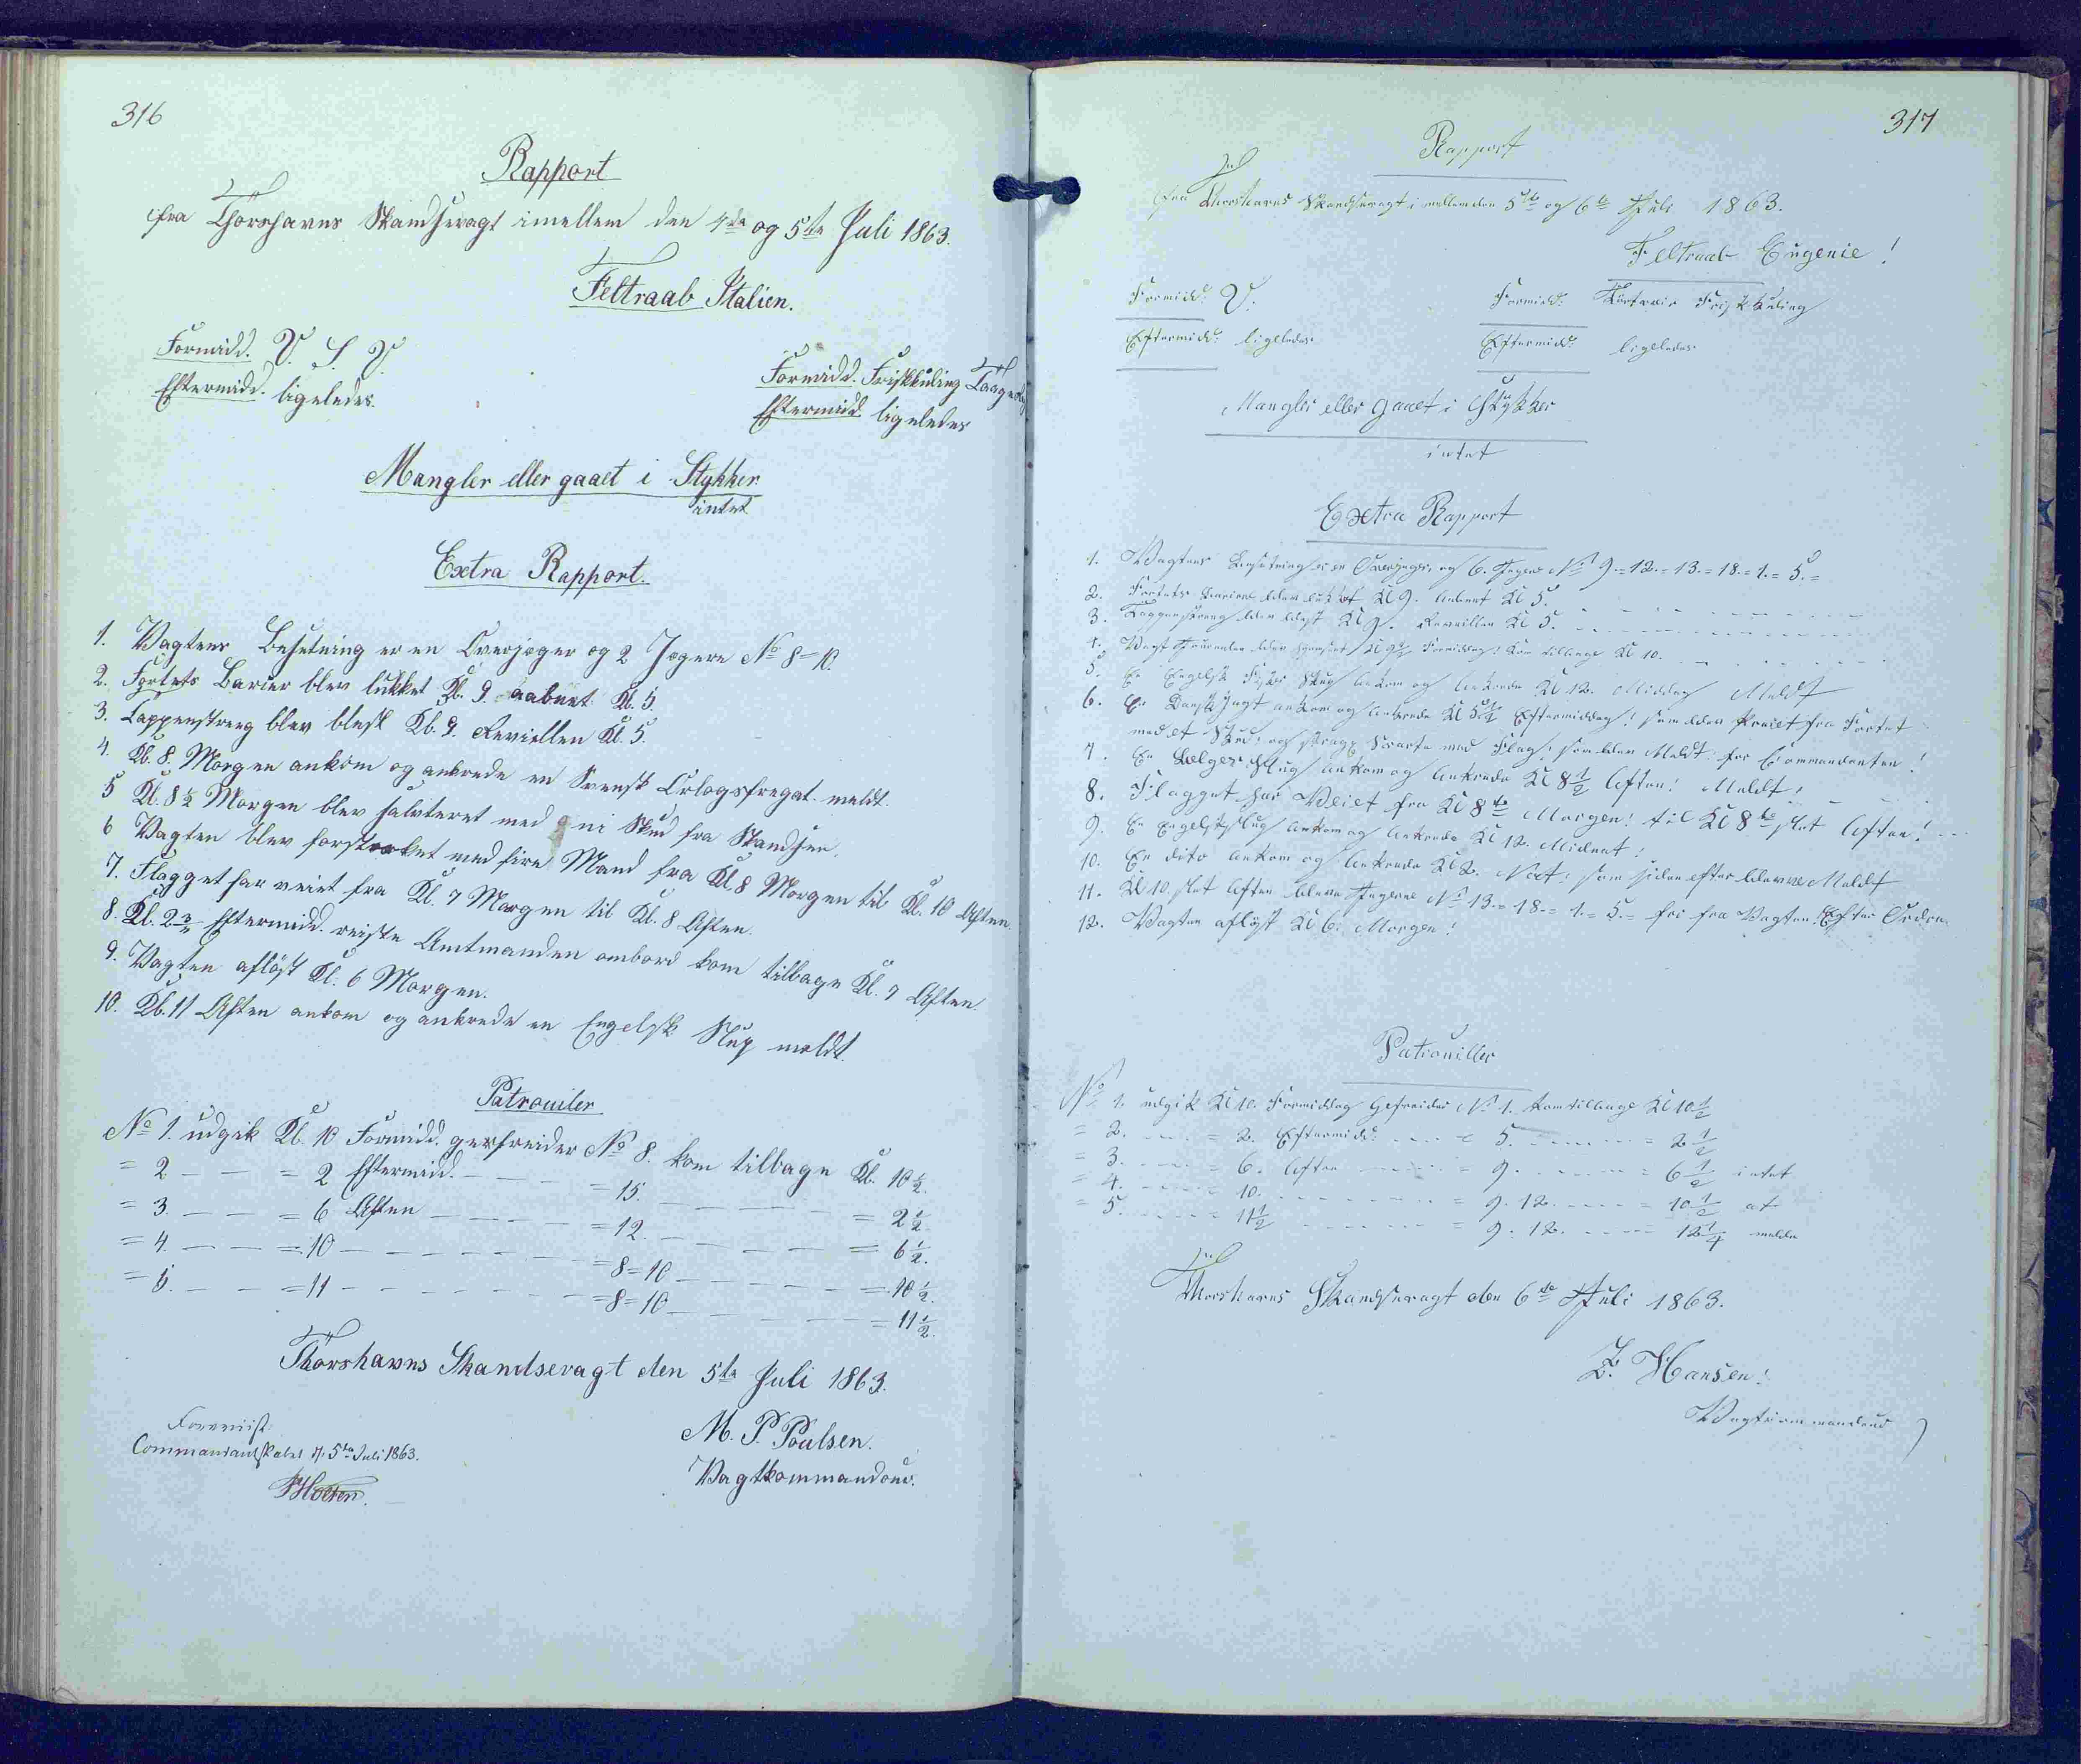 316
Rapport
fra Thorshavns Skandsevagt imellem den 4de og 5te Juli 1863.
Feltraab Italien.
Formidd. V. S. V.
Eftermidd. ligeledes.
Formidd. Friskkuling Taaget
Eftermidd. ligeledes
Mangler eller gaaet i Stykker.
intet
Extra Rapport.
1. Vagtens Besetning er en Overjæger og 2 Jægere No 8=10.
2. Fortets Barier blev lukket Kl. 9. aabnet Kl. 5.
3. Tappenstreeg blev blest Kl. 9. Reviellen Kl. 5.
4. Kl. 8. Morgen ankom og ankrede en Svensk Orlogsfregat meldt.
5 Kl. 8 1/2 Morgen blev saluteret med ni Skud fra Skandsen.
6 Vagten blev forstærket med fire Mand fra Kl. 8 Morgen til Kl. 10 Aften.
7. Flagget har veiet fra Kl. 7 Morgen til Kl. 8 Aften.
8. Kl. 2 Eftermidd. reiste Amtmanden ombord kom tilbage Kl. 7 Aften.
9. Vagten afløst Kl. 6 Morgen.
10. Kl. 11 Aften ankom og ankrede en Engelsk Slup meldt.
Patrouiler
No 1. udgik Kl. 10 Formidd. gerfreider No 8. kom tilbage Kl. 10 1/2.
= 2 — — = 2 Eftermidd. — — = 15. — — = 2 1/2
= 3. — — = 6 Aften — — = 12. — — = 6 1/2.
= 4. — — = 10 — — = 8=10 — — = 10 1/2.
= 5. — — = 11 — — = 8=10 — — = 11 1/2.
Thorshavns Skandsevagt den 5te Juli 1863.
M. P. Poulsen.
Vagtkommandeur.
Forevist
Commandantskabet d. 5te Juli 1863.
317
Rapport
fra Thorshavns Skandsevagt imellem den 5te og 6te Juli 1863.
Feltraab Eugenie!
Formidd: V.
Eftermidd: ligeledes
Formidd: Friskkuling
Eftermidd: ligeledes
Mangler eller gaaet i Stykker
intet
Extra Rapport
1. Vagtens Besetning er en Overjæger og 6. Jægere No 9.=12.=13.=18.=1.=5.=
2. Fortets Bariere blev lukket Kl 9. aabnet Kl 5.
3. Tappenstreeg blev blest Kl 9. Reveillen Kl 5.
4. Vagt Paraden blev Kl 9 1/2 Formiddag! kom tilbage Kl 10.
5. En Engelsk Fisker Slup ankom og ankrede Kl 12. Middag Meldt
6. En Dansk Jagt ankom og ankrede Kl 5 1/2 Eftermiddag! som blev Preiet fra Fortet
med et Skud, og strags svarte med Flag, som blev Meldt for Commandanten!
7. En Belger Slug ankom og ankrede Kl 8 1/2 Aften! Meldt!
8. Flagget har Veiet fra Kl 8te Morgen! til Kl 8te slet Aften!
9. En Engelsk Slug ankom og ankrede Kl 12. Midnat!
10. En dito ankom og ankrede Kl 2. Nat! som siden efter bleve Meldt
11. Kl 10. slet Aften bleve Jægerne No 13.=18.=1.=5.= fri fra Vagten! Efter Ordre.
12. Vagten afløst Kl 6. Morgen!
Patrouiller
No 1. udgik Kl 10. Formiddag Gefreider No 1. kom tilbage Kl 10 1/2
= 2. — — = 2. Eftermidd: — — = 5. — — = 2 1/2
= 3. — — 6. Aften — — = 9. — — = 6 1/2 intet
= 4. — — 10. — — = 9. 12. — — = 10 1/2 at
= 5. — — 11 1/2 — — = 9. 12. — — = 12 1/4 melde
Thorshavns Skandsevagt den 6te Juli 1863.
Z. Hansen!
Vagtcommandeur